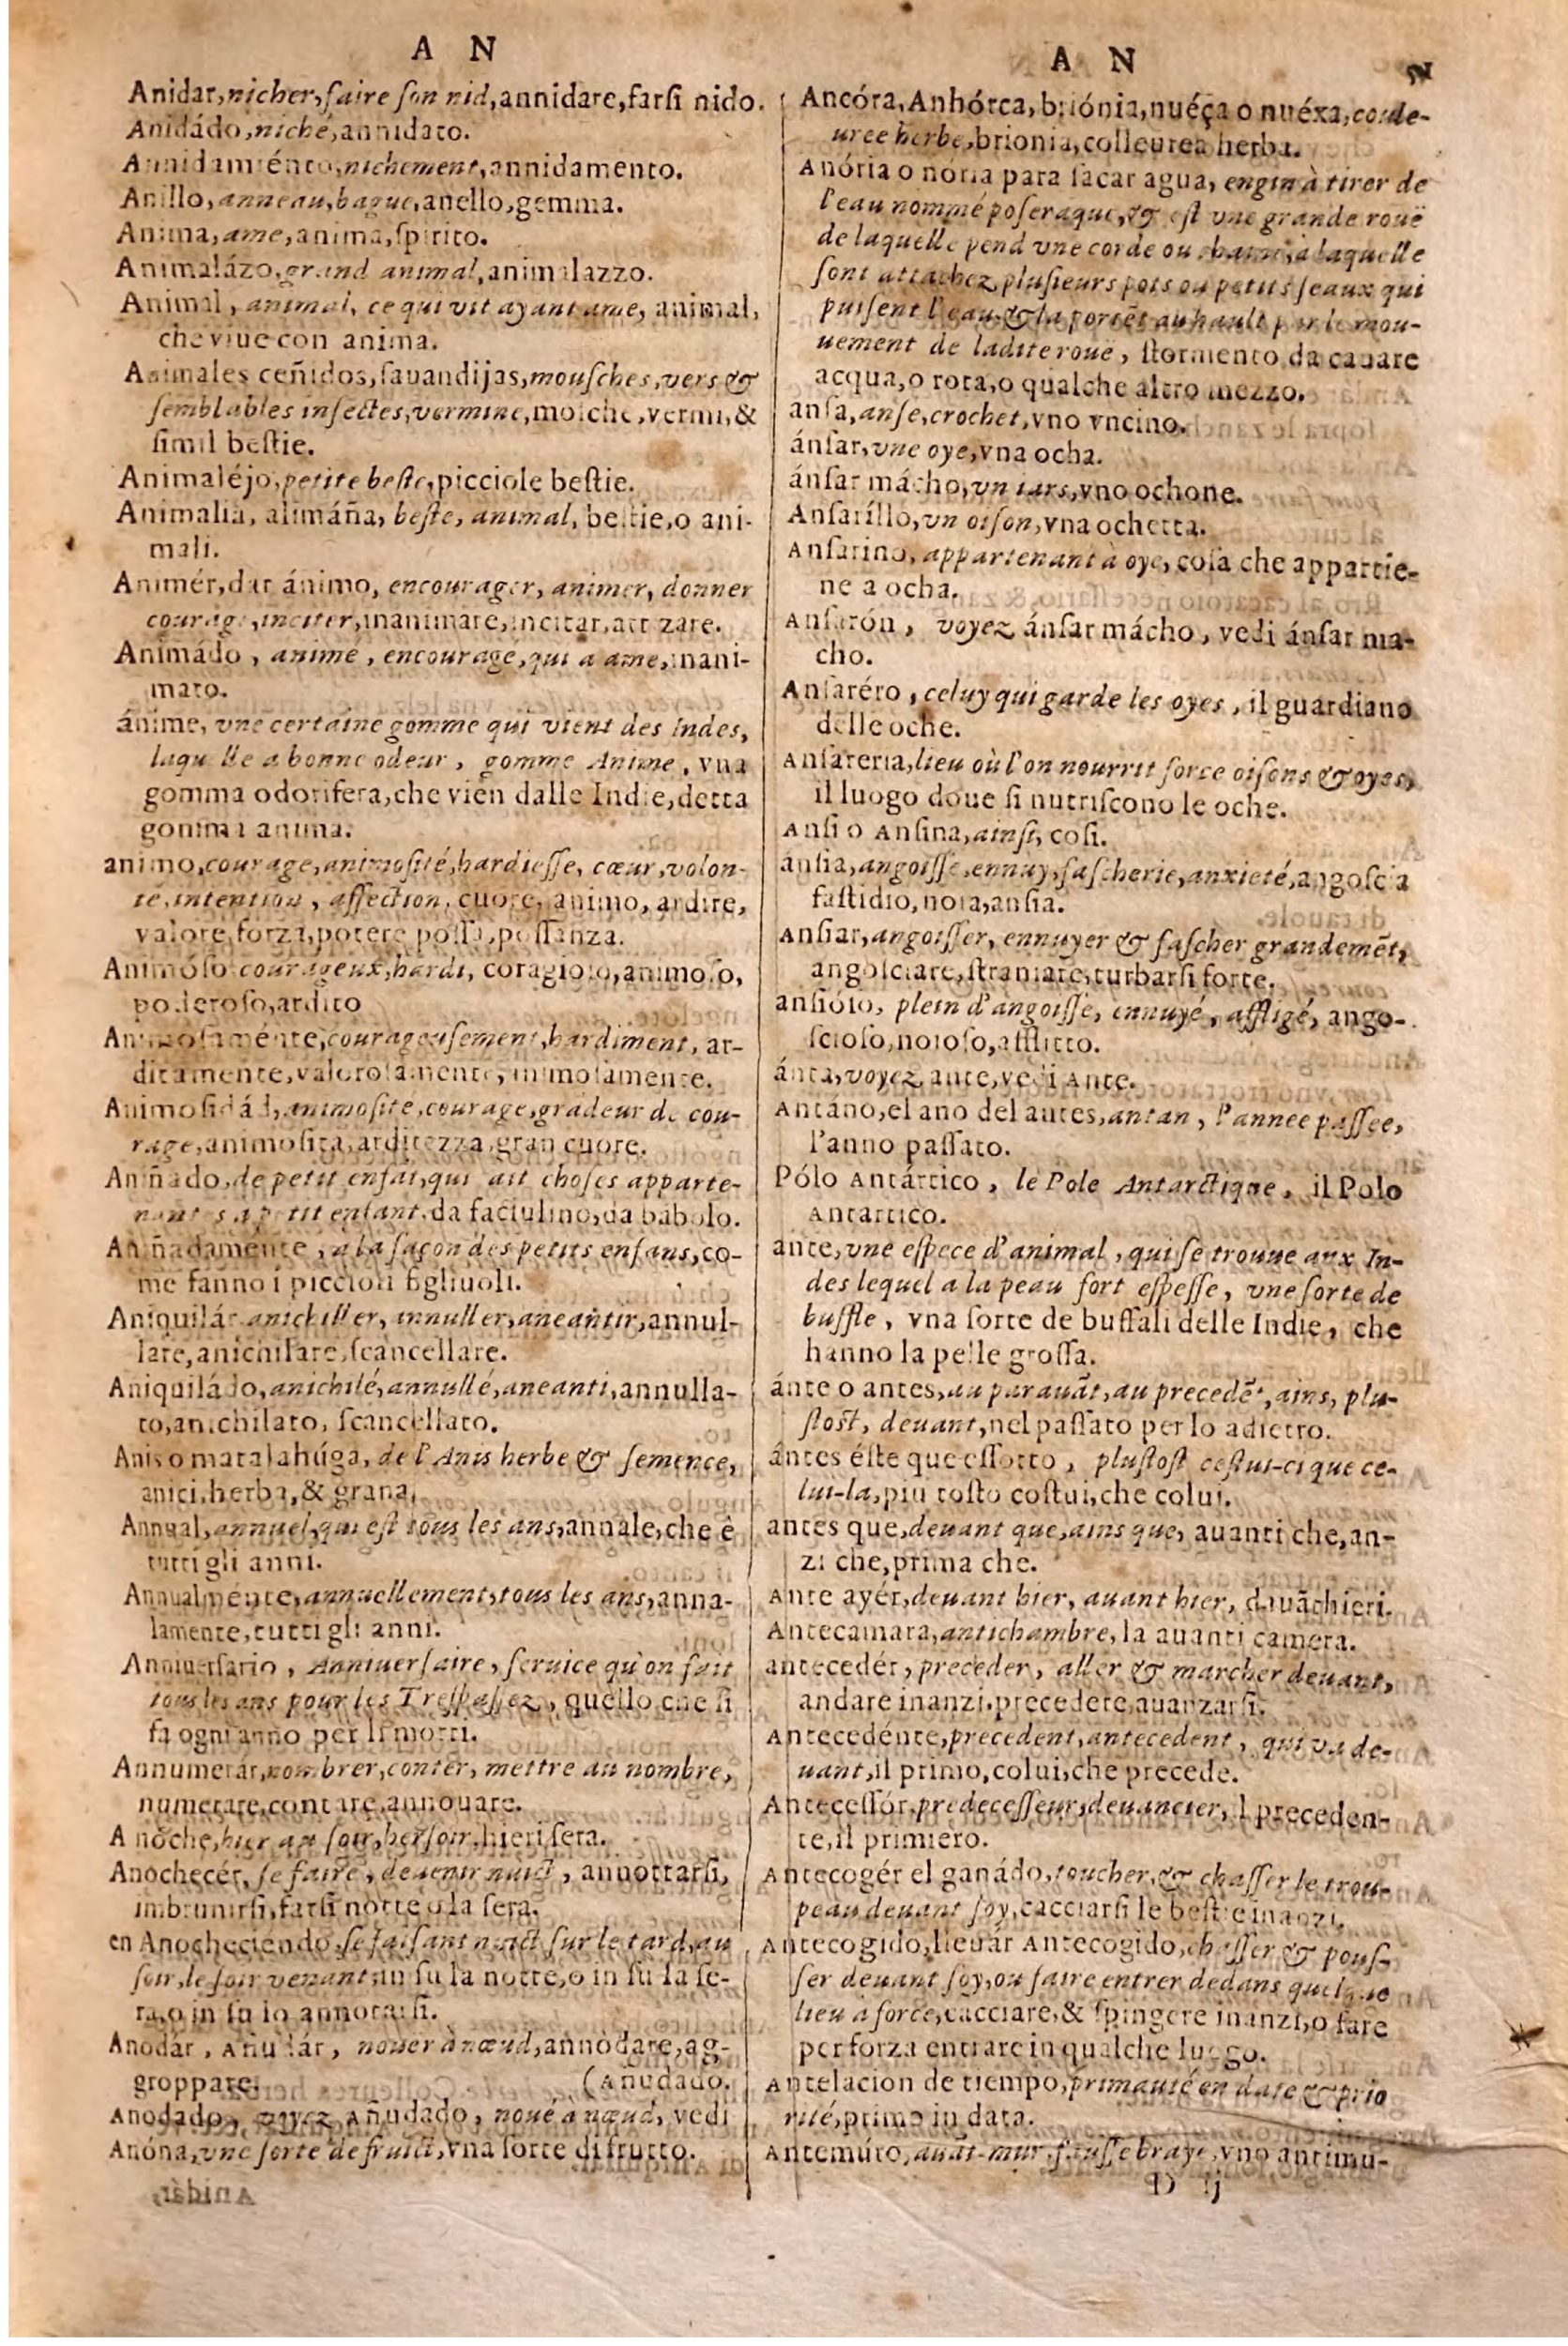 A N
Anidar,nicher,faire ſon nid,annidare,farſi nido.
Anidádo,niché,annidato.
Annidamiénto,nichement,annidamento.
Anillo,anneau,bague,anello,gemma.
Anima,ame,anima,ſpirito.
Animalázo,grand animal,animalazzo.
Animal, animal, ce qui vit ayant ame, animal,
che viue con anima.
Animales ceñidos,ſauandijas,mouſches,vers &
ſemblables inſectes,vermine,moſche,vermi,&
ſimil beſtie.
Animaléjo,petite beſte,picciole beſtie.
Animalia, alimáña, beſte, animal, beſtie,o ani-
mali.
Animár,dar ánimo, encourager, animer, donner
courage,inciter,inanimare,incitar,attizare.
Animádo, animé, encouragé,qui a ame,inani-
mato.
ánime, vne certaine gomme qui vient des Indes,
laquelle a bonne odeur, gomme Anime, vna
gomma odorifera,che vien dalle Indie,detta
gomma anima.
animo,courage,animoſité,hardieſſe, cœur,volon-
té,intention, affection, cuore, animo, ardire,
valore,forza,potere poſſa,poſſanza.
Animóſo courageux,hardi, coragioſo,animoſo,
poderoſo,ardito
Animoſaménte,courageuſement,hardiment, ar-
ditamente,valoroſamente,animoſamente.
Animoſidád,animoſité,courage,grãdeur de cou-
rage,animoſità,arditezza,gran cuore.
Aniñado,de petit enfãt,qui fait choſes apparte-
nantes à petit enfant,da faciulino,da babolo.
Aniñadaménte, à la façon des petits enfans,co-
me fanno i piccioli figliuoli.
Aniquilár anichiller, annuller,aneantir,annul-
lare,anichilare,ſcancellare.
Aniquiládo,anichilé,annullé,aneanti,annulla-
to,anichilato, ſcancellato.
Anis o matalahúga, de l'Anis herbe & ſemence,
anici,herba,& grana,
Annual,annuel,qui eſt tous les ans,annale,che è
tutti gli anni.
Annualménte,annuellement,tous les ans,anna-
lamente,tutti gli anni.
Anniuerſario, Anniuerſaire, ſeruice qu'on fait
tous les ans pour les Treſpaſſez, quello che ſi
fa ogni anno per li morti.
Annumerár,nombrer,conter, mettre au nombre,
numerare,contare,annouare.
A nóche,hier au ſoir,herſoir,hieri ſera.
Anochecér, ſe faire, deuenir nuict, annottarſi,
imbrunirſi,farſi notte o la ſera.
en Anocheciendo,ſe faiſant nuict ſur le tard,au
ſoir,le ſoir venant,in ſu la notte,o in ſu la ſe-
ra,o in ſu lo annotarſi.
Anodár, Añudár, nouer à nœud,annodare,ag-
groppare. (Añudado.
Anodado, voyez Añudado, noué à nœud, vedi
Anóna,vne ſorte de fruict,vna ſorte di frutto.
A N
Ancóra,Anhórca,brionia,nuéça o nuéxa,coule-
uree herbe,brionia,colleurea herba.
Anória o nória para ſacar agua, engin à tirer de
l'eau nommé poſeraque,& eſt vne grande rouë
de laquelle pend vne corde ou chaine,à laquelle
ſont attachez pluſieurs pots ou petits ſeaux qui
puiſent l'eau & la portẽt au hault par le mou-
uement de ladite rouë, ſtormento da cauare
acqua,o rota,o qualche altro mezzo.
anſa,anſe,crochet,vno vncino.
ánſar,vne oye,vna ocha.
ánſar mácho,vn iars,vno ochone.
Anſaríllo,vn oiſon,vna ochetta.
Anſarino, appartenant à oye, coſa che appartie-
ne a ocha.
Anſarón, voyez ánſar mácho, vedi ánſar ma-
cho.
Anſaréro, celuy qui garde les oyes, il guardiano
delle oche.
Anſareria,lieu où l'on nourrit force oiſons & oyes,
il luogo doue ſi nutriſcono le oche.
Anſi o Anſina,ainſi, coſi.
ánſia,angoiſſe,ennuy,faſcherie,anxieté,angoſcia
faſtidio,noia,anſia.
Anſiar,angoiſſer, ennuyer & faſcher grandemẽt,
angoſciare,ſtraniare,turbarſi forte.
anſióſo, plein d'angoiſſe, ennuyé, affligé, ango-
ſcioſo,noioſo,afflitto.
ánta,voyez ante,vedi Ante.
Antáno,el ano del antes,antan, l'annee paſſee,
l'anno paſſato.
Pólo Antártico, le Pole Antarctique, il Polo
Antartico.
ante,vne eſpece d'animal, qui ſe trouue aux In-
des lequel a la peau fort eſpeſſe, vne ſorte de
buffle, vna ſorte de buffali delle Indie, che
hanno la pelle groſſa.
ánte o antes,au parauãt,au precedẽt,ains, plu-
ſtoſt, deuant,nel paſſato per lo adietro.
ántes éſte que eſſotro, pluſtoſt ceſtui-ci que ce-
lui-la,piu toſto coſtui,che colui.
antes que,deuant que,ains que, auanti che,an-
zi che,prima che.
Ante ayér,deuant hier, auant hier, dauãthieri.
Antecamara,antichambre,la auanti camera.
antecedér, preceder, aller & marcher deuant,
andare inanzi,precedere,auanzarſi.
Antecedénte,precedent,antecedent, qui va de-
uant,il primo,colui,che precede.
Anteceſſór,predeceſſeur,deuancier,il preceden-
te,il primiero.
Antecogér el ganádo,toucher,& chaſſer le trou-
peau deuant ſoy,cacciarſi le beſtie inanzi.
Antecogido,lleuár Antecogido,chaſſer & pouſ-
ſer deuant ſoy,ou faire entrer dedans quelque
lieu à force,cacciare,& ſpingere inanzi,o fare
per forza entrare in qualche luogo.
Antelacion de tiempo,primauté en date & prio
rité,primo in data.
Antemúro,auãt-mur,fauſſe braye,vno antimu-
D ij